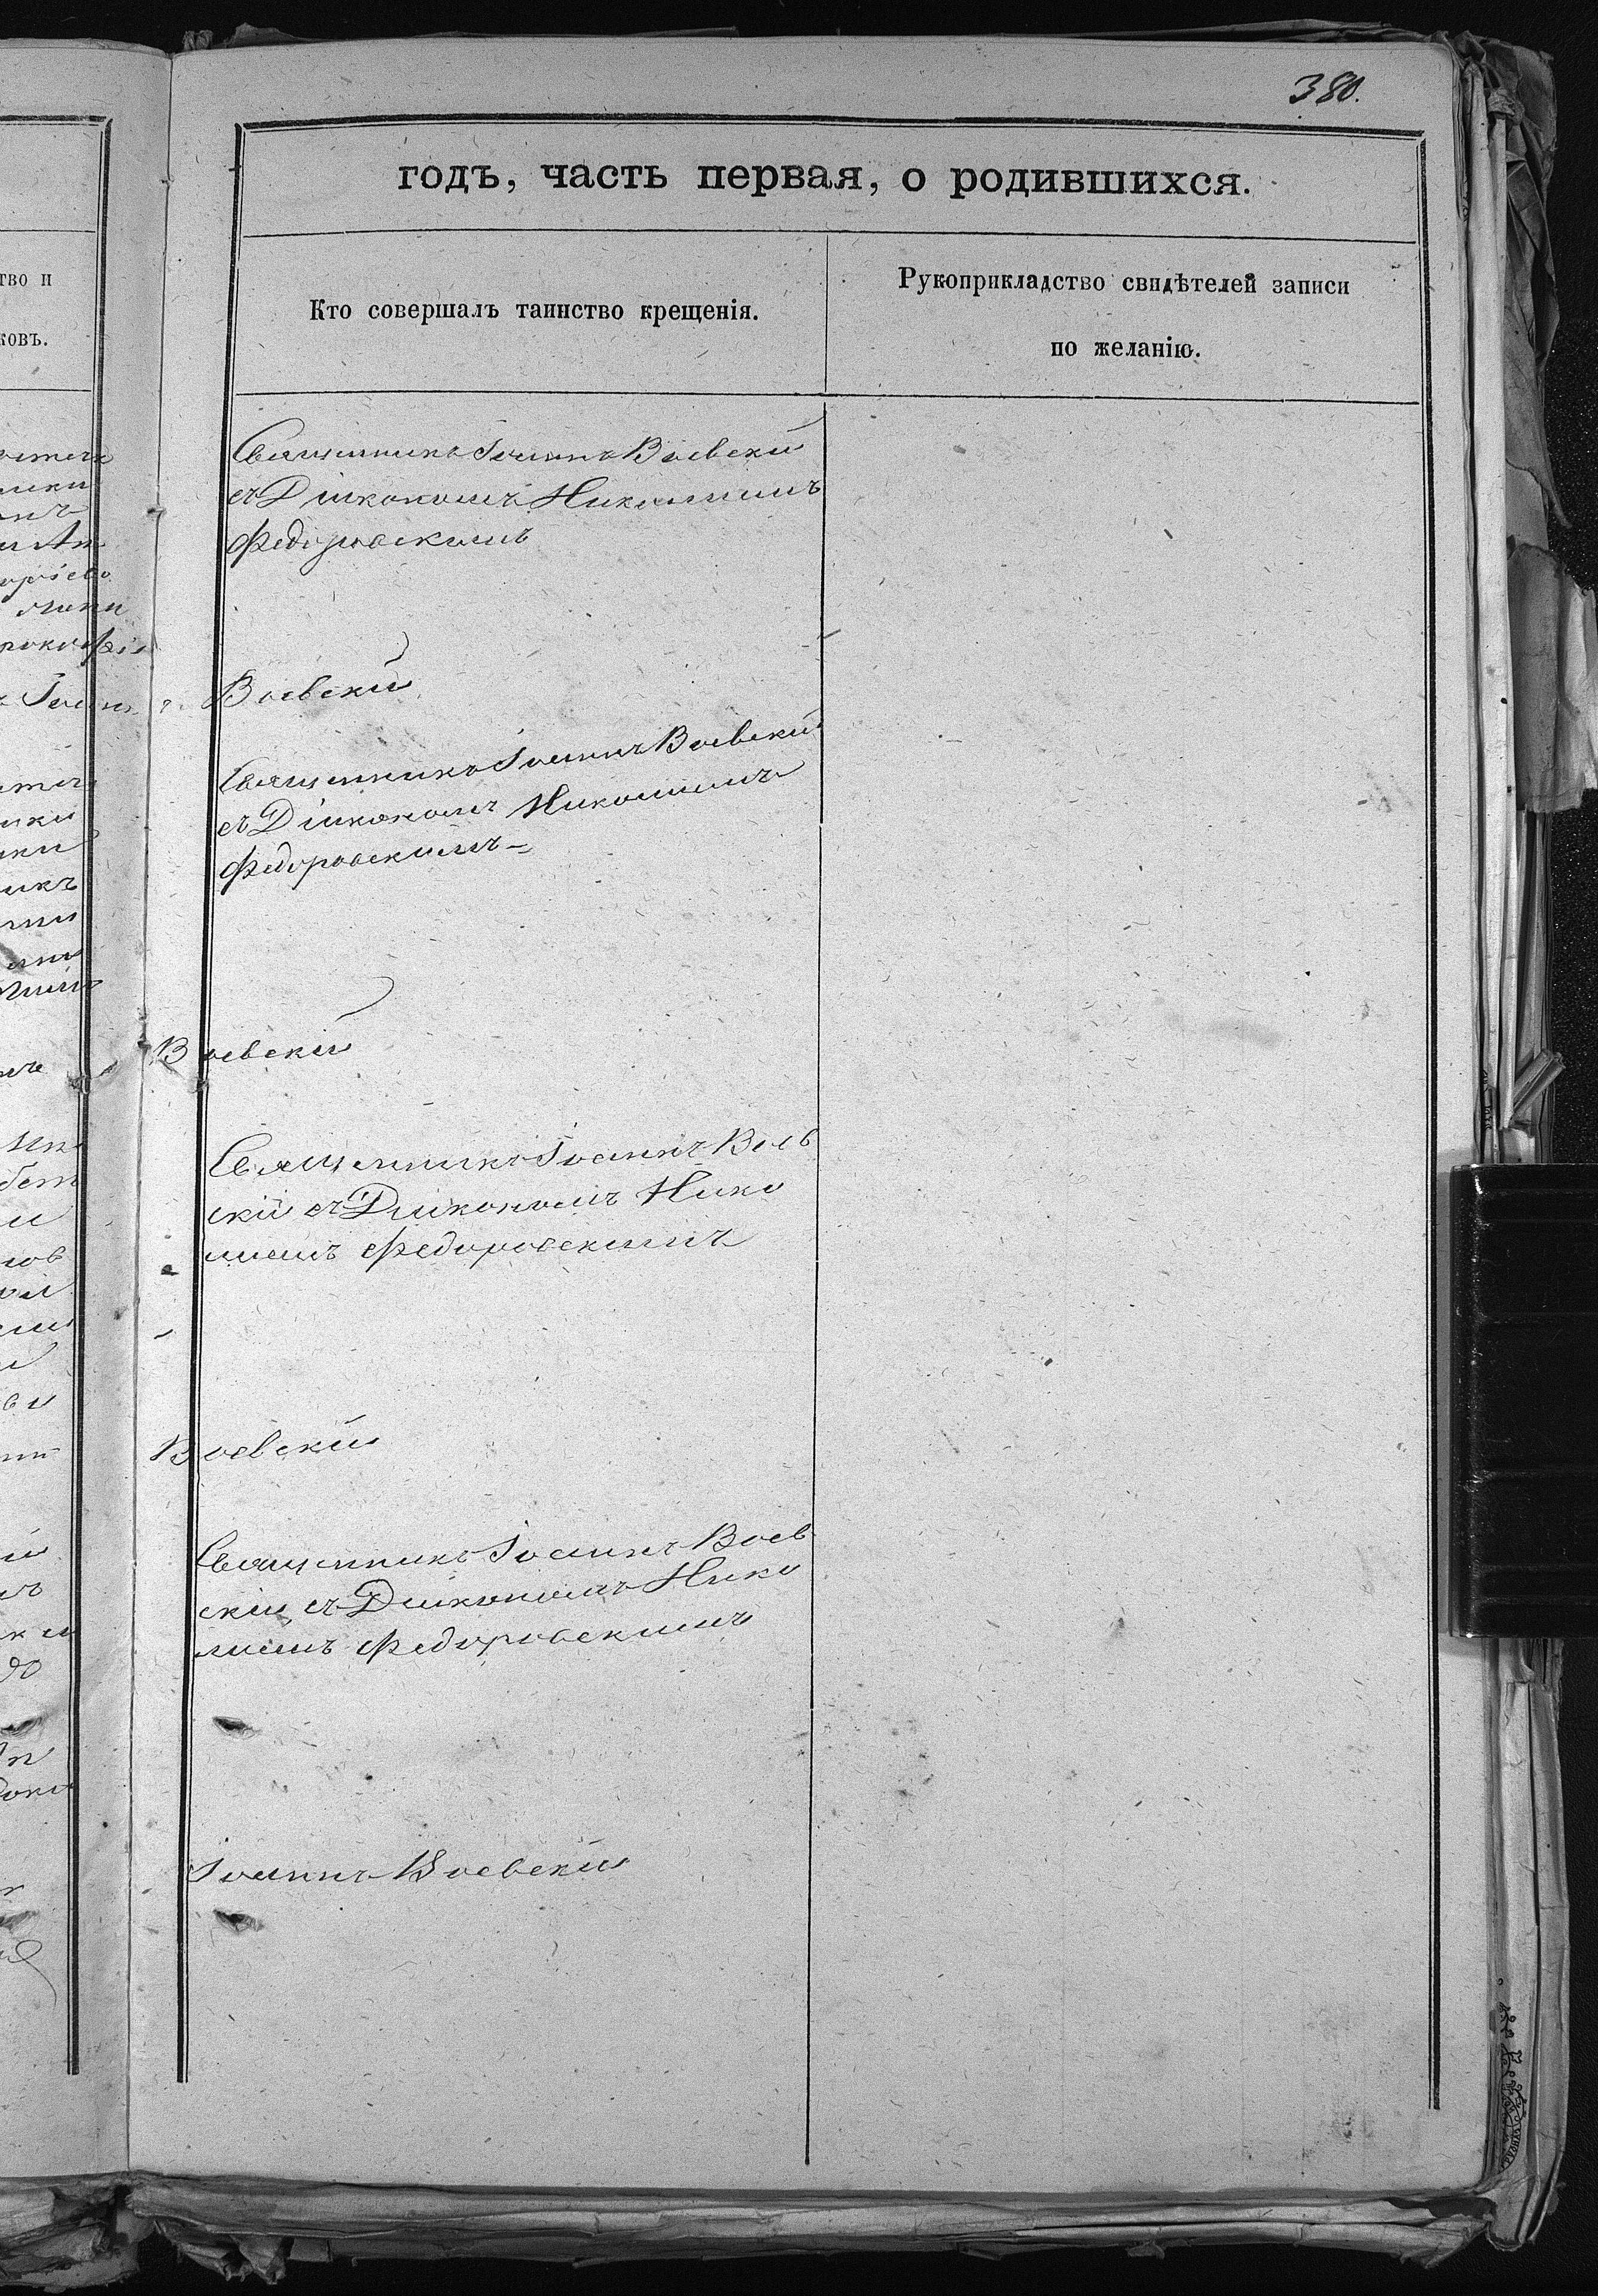 380.
годъ, часть первая, о родившихся.
тво и
ковъ.
Кто совершалъ таинство крещенія.
Рукоприкладство свидѣтелей записи
по желанію.
Священникъ Іоаннъ Воевскій
съ Діакономъ Николаемъ
Федоровскимъ
Воевскій
Священникъ Іоаннъ Воевскій
съ Діакономъ Николаемъ
Федоровскимъ
Воевскій
Священникъ Іоаннъ Воев
скій съ Діакономъ Нико
лаемъ Федоровскимъ
Воевскій
Священникъ Іоаннъ Воев
скій съ Діакономъ Нико
лаемъ Федоровскимъ
Іоаннъ Воевскій